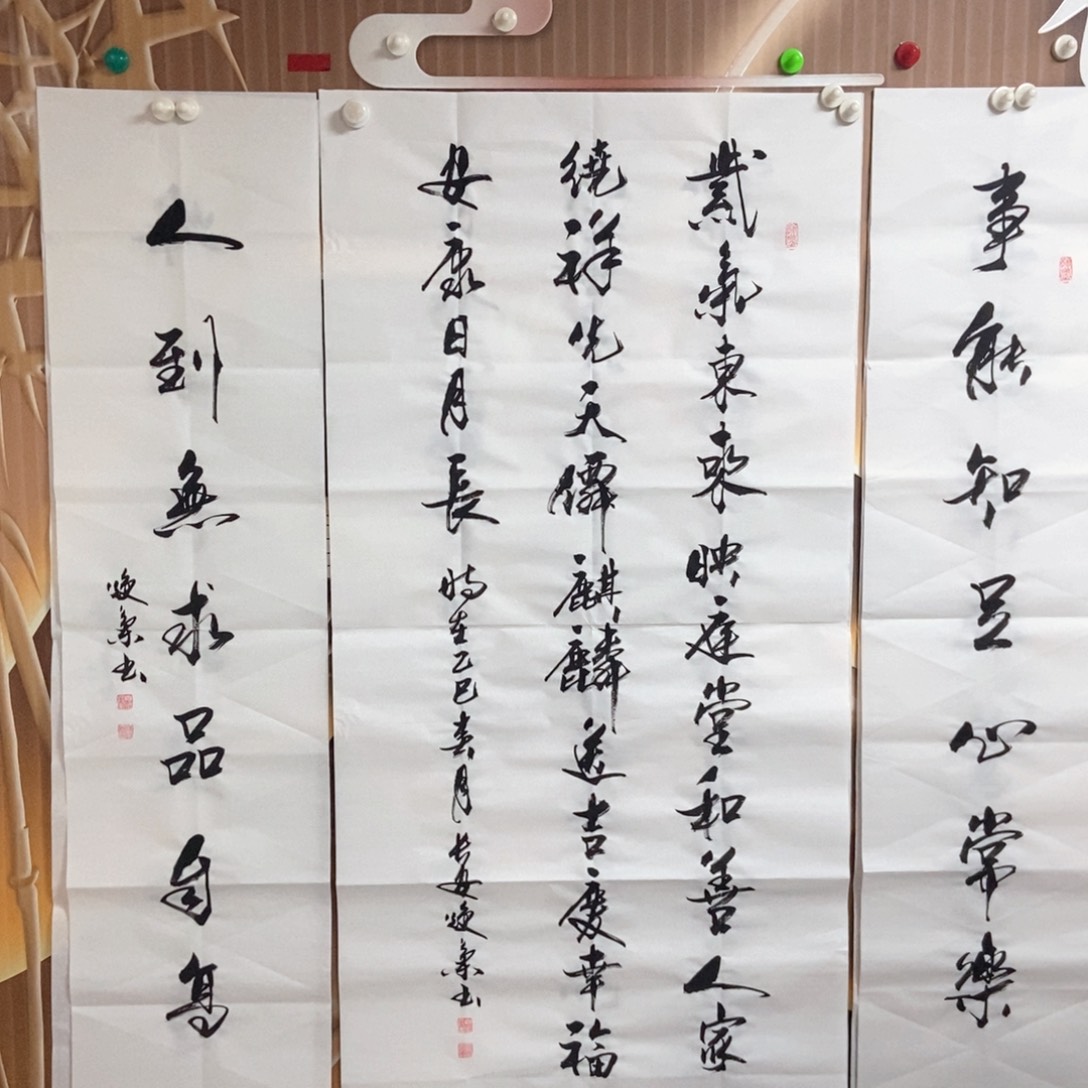 事能知足心常樂
紫氣東來映庭堂和善人家
繞祥光天僊麒麟送吉慶幸福
安康日月長
時在乙巳春月長安煥书
人到無求品自高
煥书